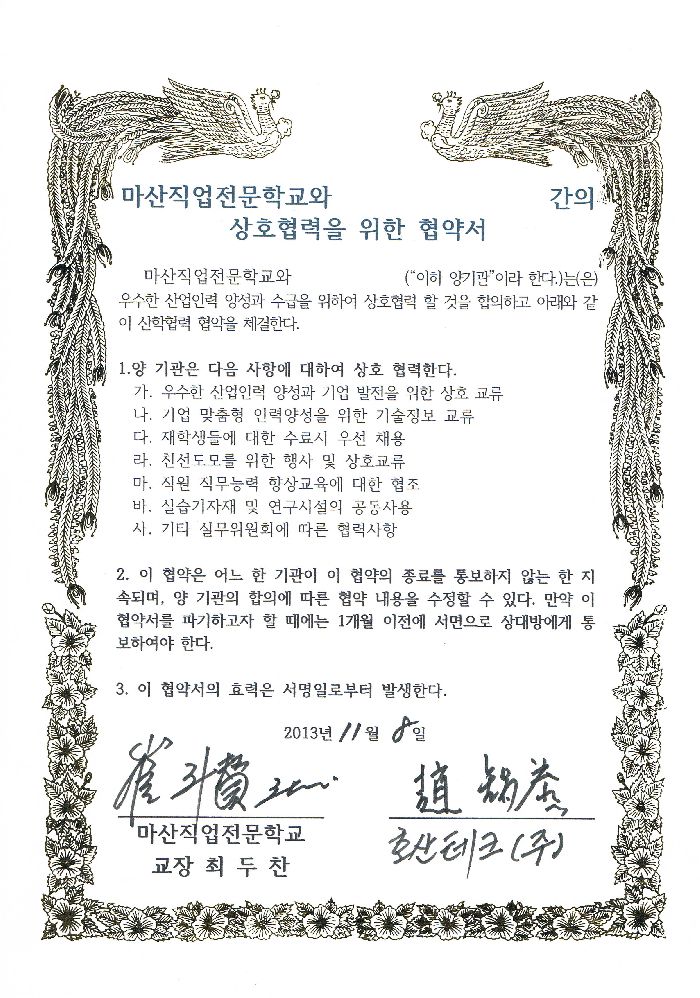 마산직업전문학교와 간의
상호협력을 위한 협약서
마산직업전문학교와 ("이하 양기관"이라 한다.)는(은)
우수한 산업인력 양성과 수급을 위하여 상호협력 할 것을 합의하고 아래와 같
이 산학협력 협약을 체결한다.
1.양 기관은 다음 사항에 대하여 상호 협력한다.
가. 우수한 산업인력 양성과 기업 발전을 위한 상호 교류
나. 기업 맞춤형 인력양성을 위한 기술정보 교류
다. 재학생들에 대한 수료시 우선 채용
라. 친선도모를 위한 행사 및 상호교류
마. 직원 직무능력 향상교육에 대한 협조
바. 실습기자재 및 연구시설의 공동사용
사. 기타 실무위원회에 따른 협력사항
2. 이 협약은 어느 한 기관이 이 협약의 종료를 통보하지 않는 한 지
속되며, 양 기관의 합의에 따른 협약 내용을 수정할 수 있다. 만약 이
협약서를 파기하고자 할 때에는 1개월 이전에 서면으로 상대방에게 통
보하여야 한다.
3. 이 협약서의 효력은 서명일로부터 발생한다.
2013년 11월 8일
마산직업전문학교
호산테크(주)
교장 최 두 찬